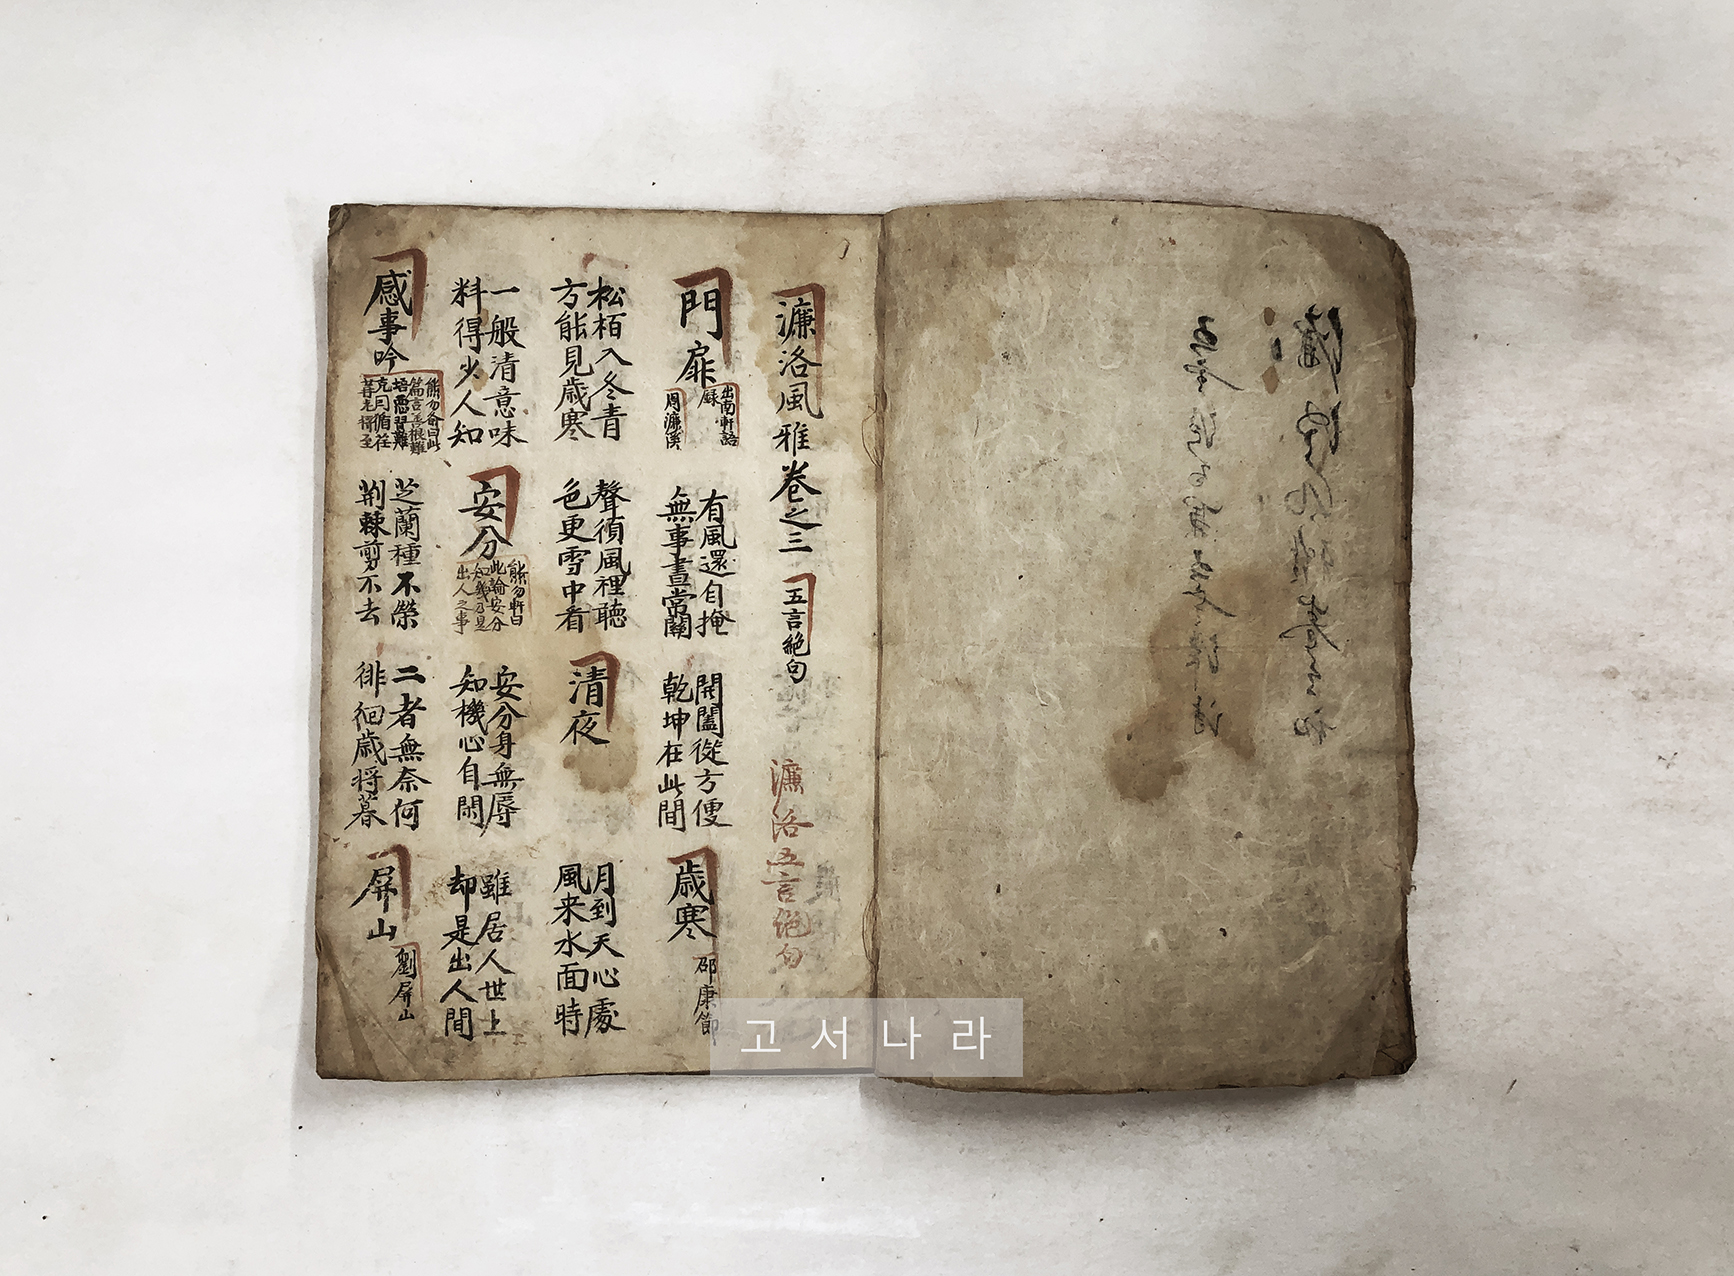 濂洛風雅卷之三
五言絶句
濂洛五言絶句
門扉
出南軒語
録
周濂溪
有風還自掩
無事晝常關
開闔從方便
乾坤在此間
歲寒
邵康節
松栢入冬青
方能見歲寒
聲須風裡聽
色更雪中看
清夜
月到天心處
風来水面時
一般清意味
料得少人知
安分
熊勿軒曰
此論安分
知幾乃是
出人之事
安分身無辱
知機心自閑
雖居人世上
却是出人間
感事吟
熊勿曰此
篇言善根難
培惡習難
芝蘭種不榮
荊棘剪不去
二者無奈何
徘徊歲將暮
屏山
劉屏山
고서나라